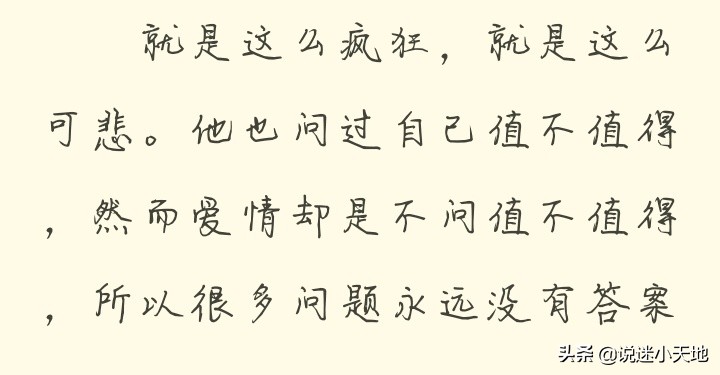 就是这么疯狂，就是这么
可悲。他也问过自己值不值得
，然而爱情却是不问值不值得
，所以很多问题永远没有答案
头条 @说迷小天地